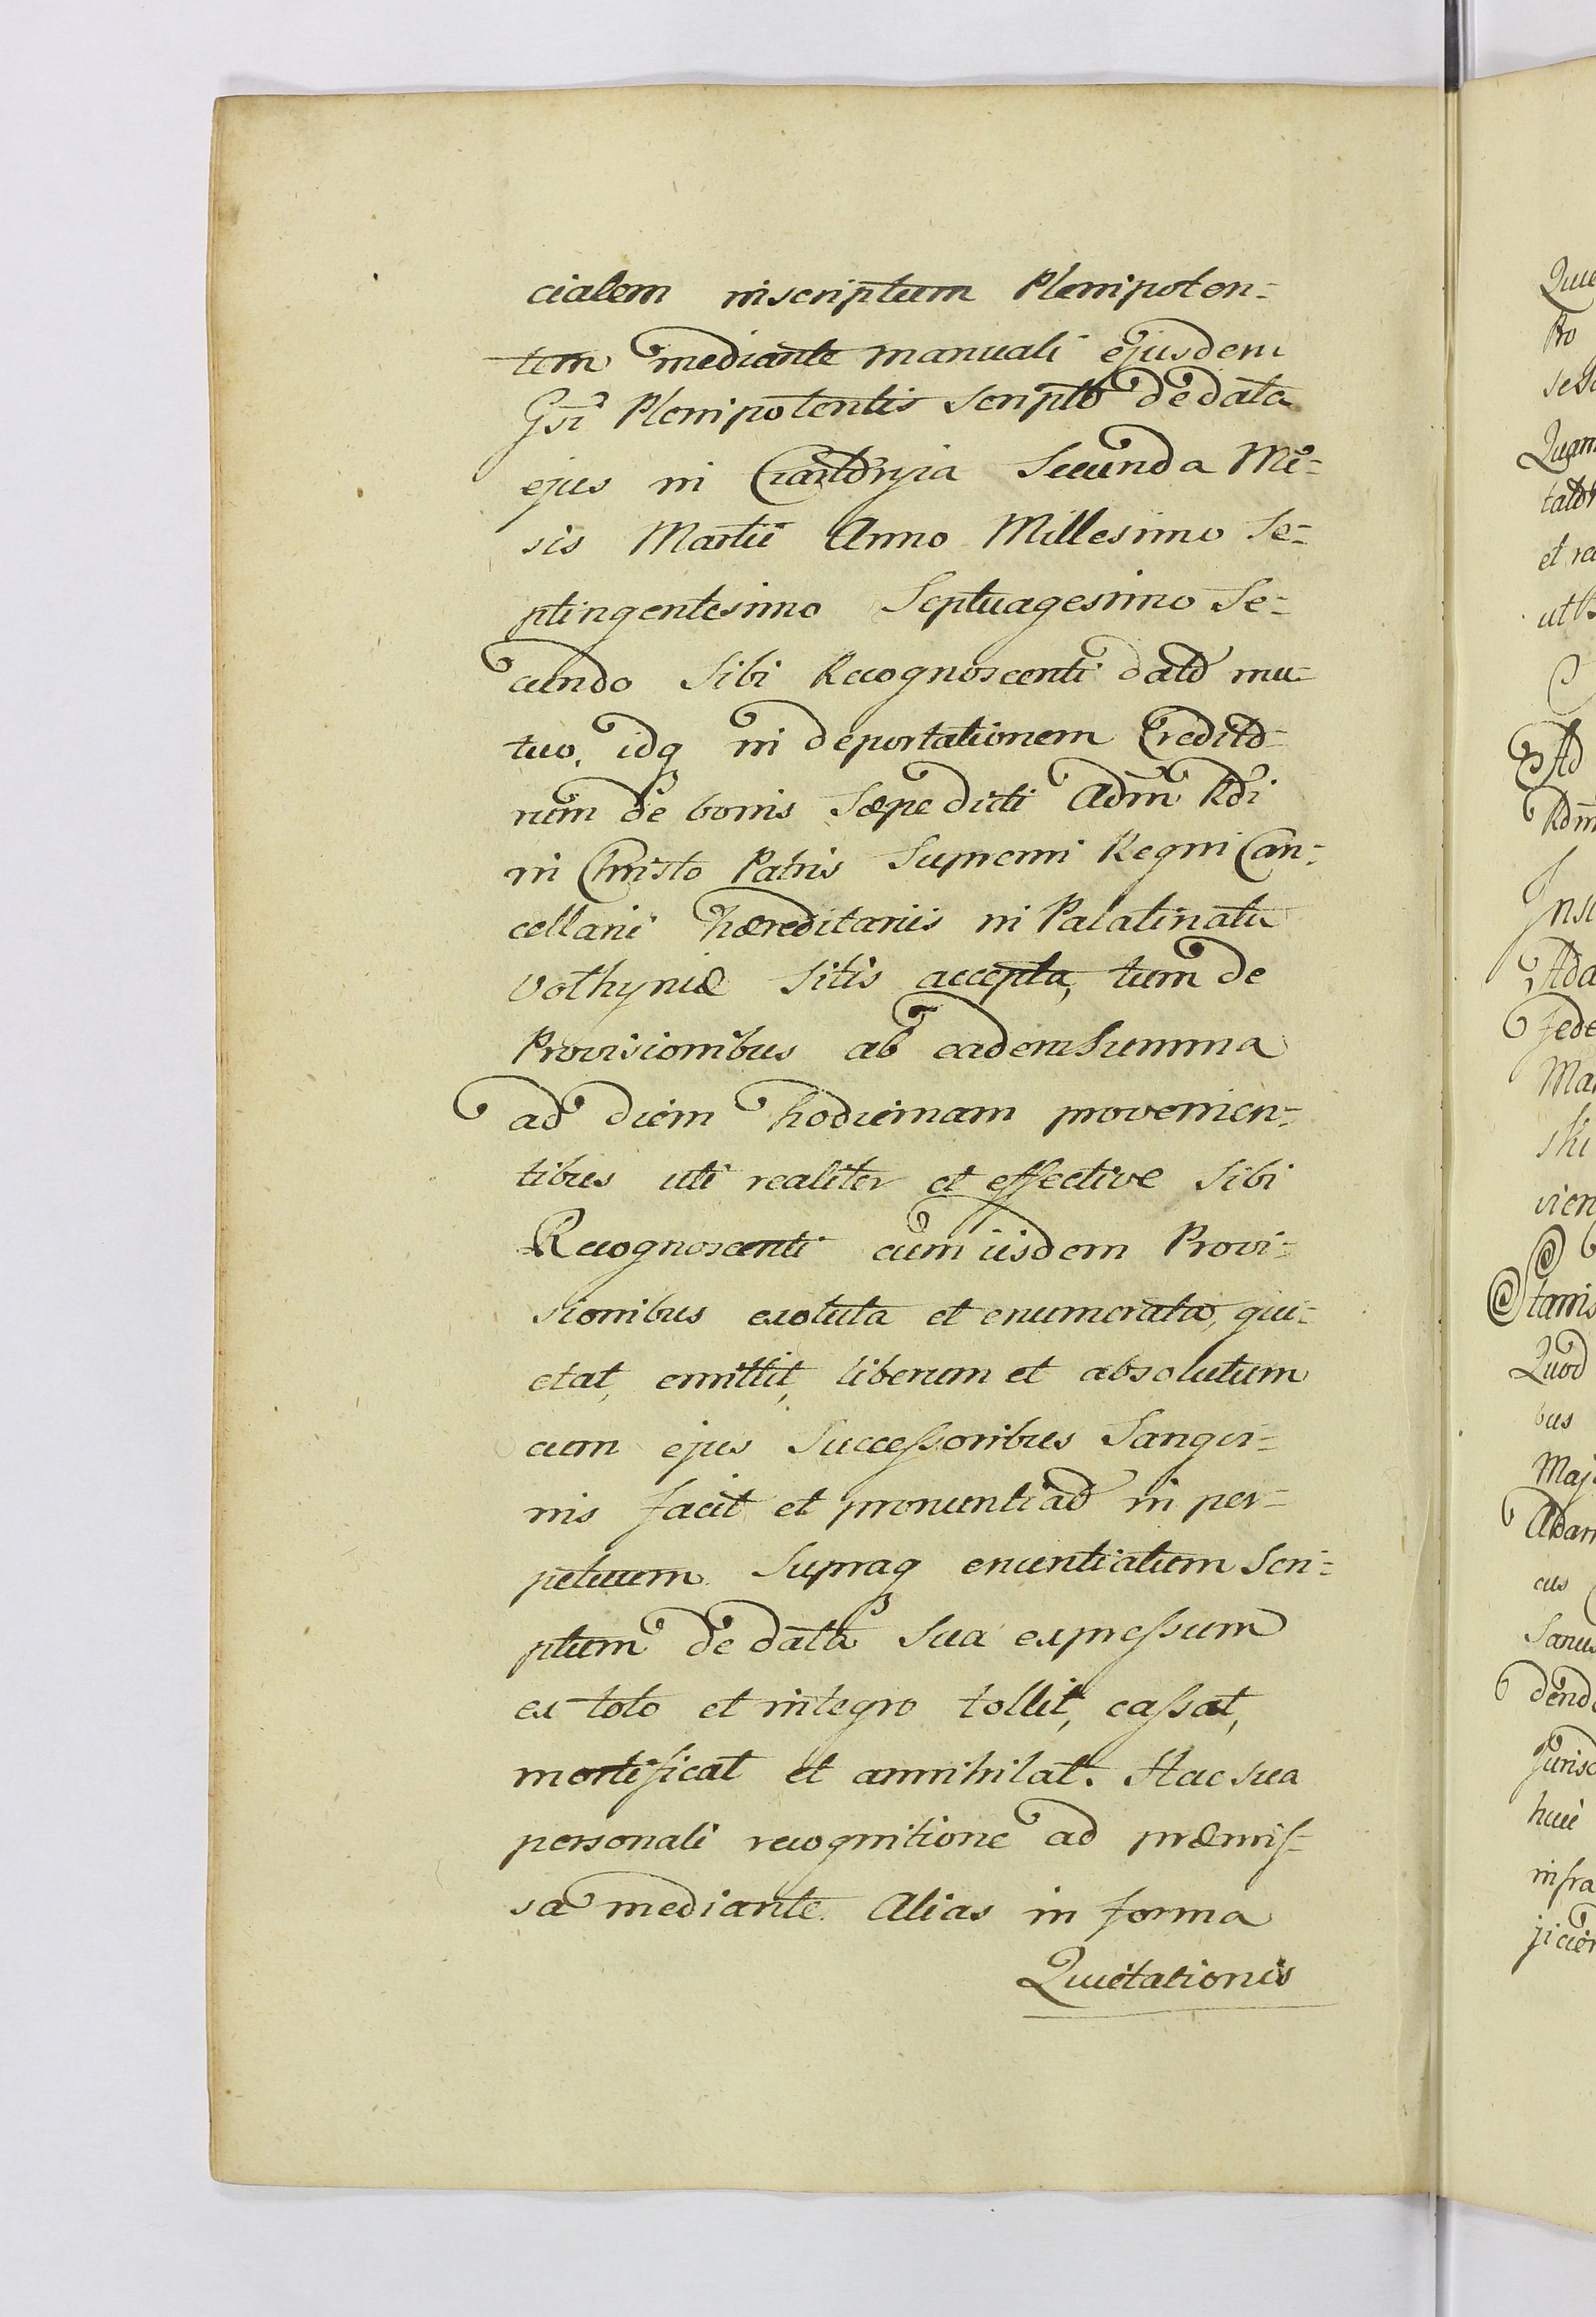 cialem inscriptum Plenipoten=
tem mediante manuali ejusdem
Gsi Plenipotentis scripto de data
ejus in Czartoryia Secunda Me=
sis Martii Anno Millesimo Se=
ptingentesimo Septuagesimo Se=
cundo Sibi Recognoscenti dato mu=
tuo, idq in deportationem Credito=
rum de bonis Sæpe dicti Adm̃ Rdi
in Christo Patris Supremi Regni Can=
cellarii hæreditariis in Palatinatu
Volhyniæ Sitis accepta, tum de
Provisionibus ab eadem Summa
ad diem hodiernam provenien=
tibus uti realiter et effective Sibi
Recognoscenti cum iisdem Provi=
sionibus exoluta et enumerata, qui=
etat, emittit, liberum et absolutum
cum ejus Successoribus Sangvi=
nis facit et pronuntiad in per=
petuum. Supraq enuntiatum Scri=
ptum de data Sua expressum
ex toto et integro tollit, cassat,
mortificat et annihilat. Hac sua
personali recognitione ad præmis=
sa mediante. Alias in forma
Quietationis
Quie
Pro
sese
Quam
et re
Ad
Rdm
Insc
Ada
fede
Mar
ski
vien
Stanis
Quod
bus
Maj
Adam
cus
Sanus
dend
Jurisd
huic
infra